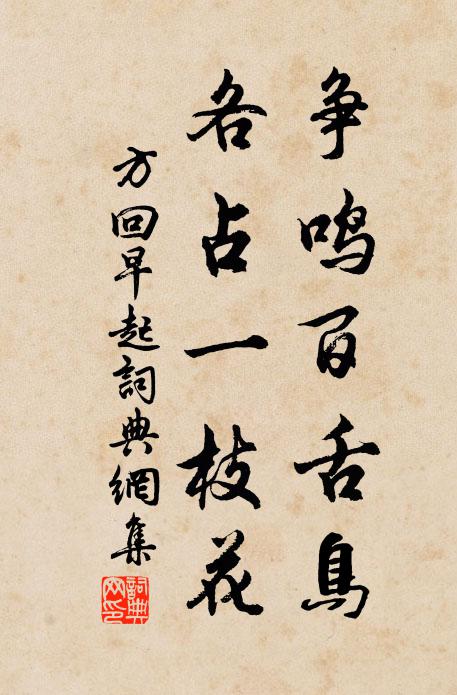 争鸣百舌鳥
各占一枝花
方回早起詞典網集
詞典网印